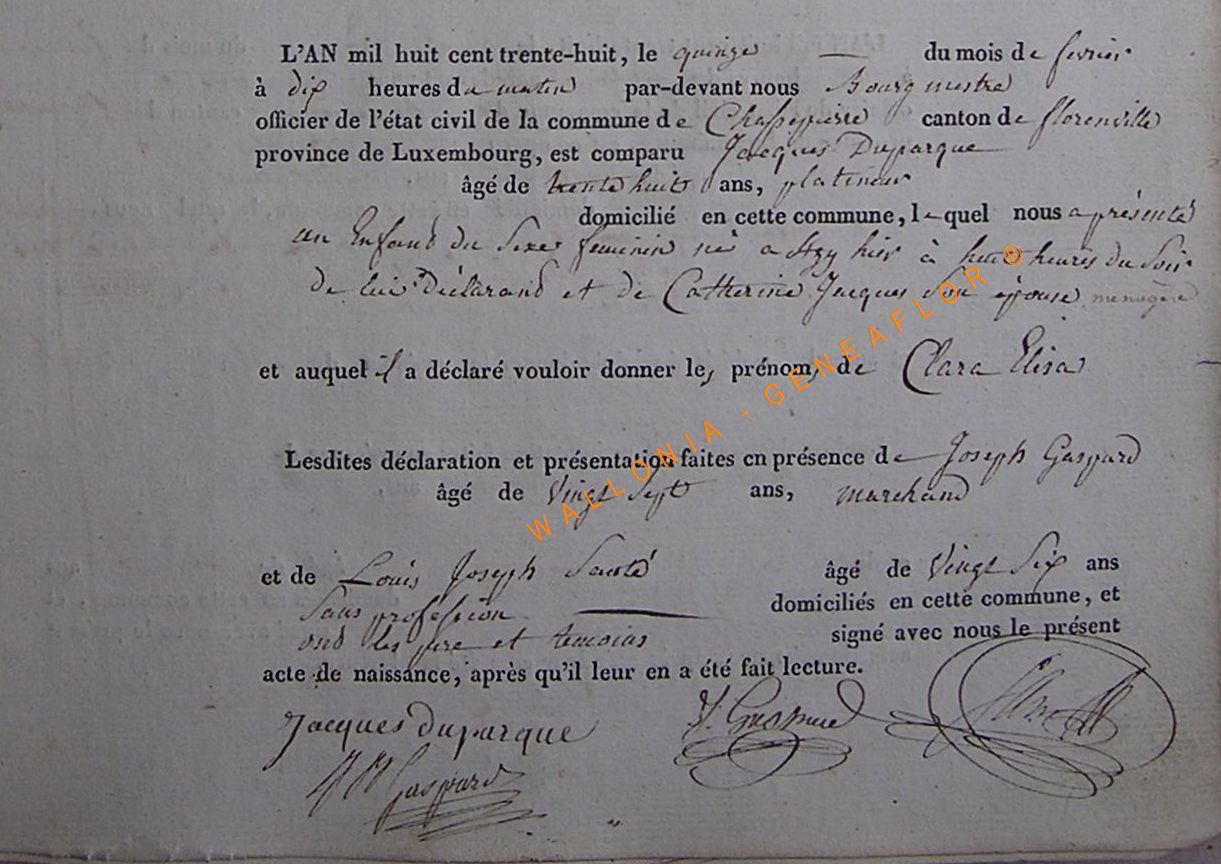 L'AN mil huit cent trente-huit, le quinze — du mois de fevrier
à dix heures du matin par-devant nous Bourgmestre
officier de l'état civil de la commune de Chassepierre canton de florenville
province de Luxembourg, est comparu Jacques Duparque
âgé de trente huit ans, platineur
domicilié en cette commune, lequel nous a présenté
un Enfand du Sexe feminin né a Azy hier à huit heures du Soir
de lui Déclarand et de Catherine Jacques Son épouse menagère
et auquel il a déclaré vouloir donner les prénoms de Clara Elisa
Lesdites déclaration et présentation faites en présence de Joseph Gaspard
âgé de Vingt Sept ans, marchand
et de Louis Joseph âgé de Vingt Six ans
Sans profession — domiciliés en cette commune, et
ond les pere et temoins signé avec nous le présent
acte de naissance, après qu'il leur en a été fait lecture.
Jacques duparque
Gaspard
WALLONIA - GENEAFLOR ®